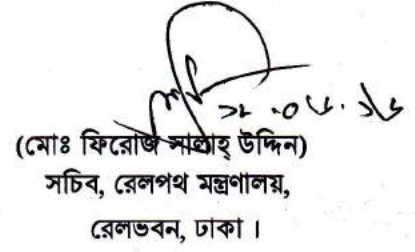 (মোঃ ফিরোজ সালাহ্ উদ্দিন)
সচিব, রেলপথ মন্ত্রণালয়,
রেলভবন, ঢাকা ।